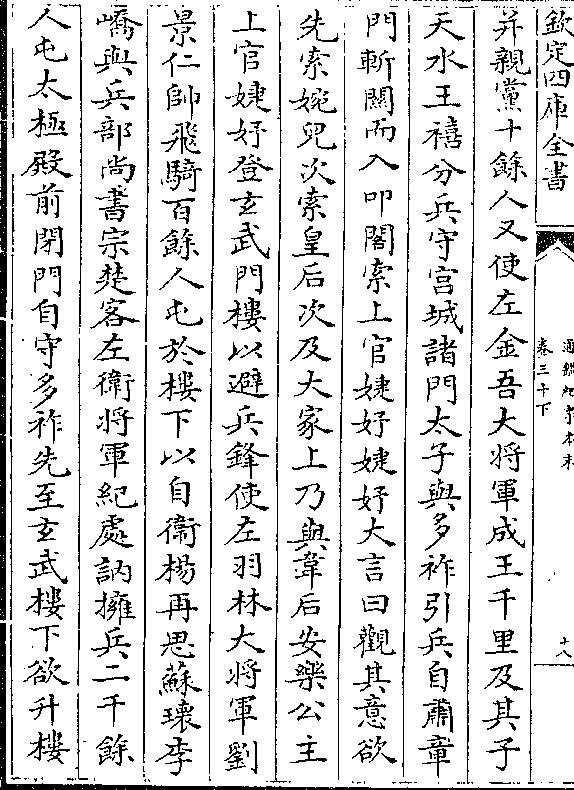 欽定四庫全書
通鑑紀事本末
卷三十下
十八
并親黨十餘人又使左金吾大將軍成王千里及其子
天水王禧分兵守宮城諸門太子與多祚引兵自肅章
門斬關而入叩閤索上官婕妤婕妤大言曰觀其意欲
先索婉兒次索皇后次及大家上乃與韋后安樂公主
上官婕妤登玄武門樓以避兵鋒使左羽林大將軍劉
景仁帥飛騎百餘人屯於樓下以自衛楊再思蘇瓌李
嶠與兵部尚書宗楚客左衛將軍紀處訥擁兵二千餘
人屯太極殿前閉門自守多祚先至玄武樓下欲升樓